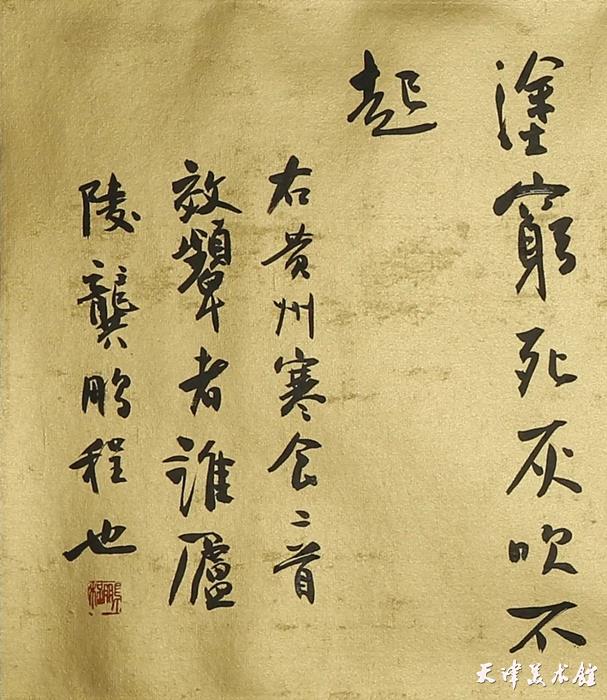 塗窮死灰吹不
起
右黄州寒食二首
效顰者誰廬
陵龔鵬程也
天津美术馆